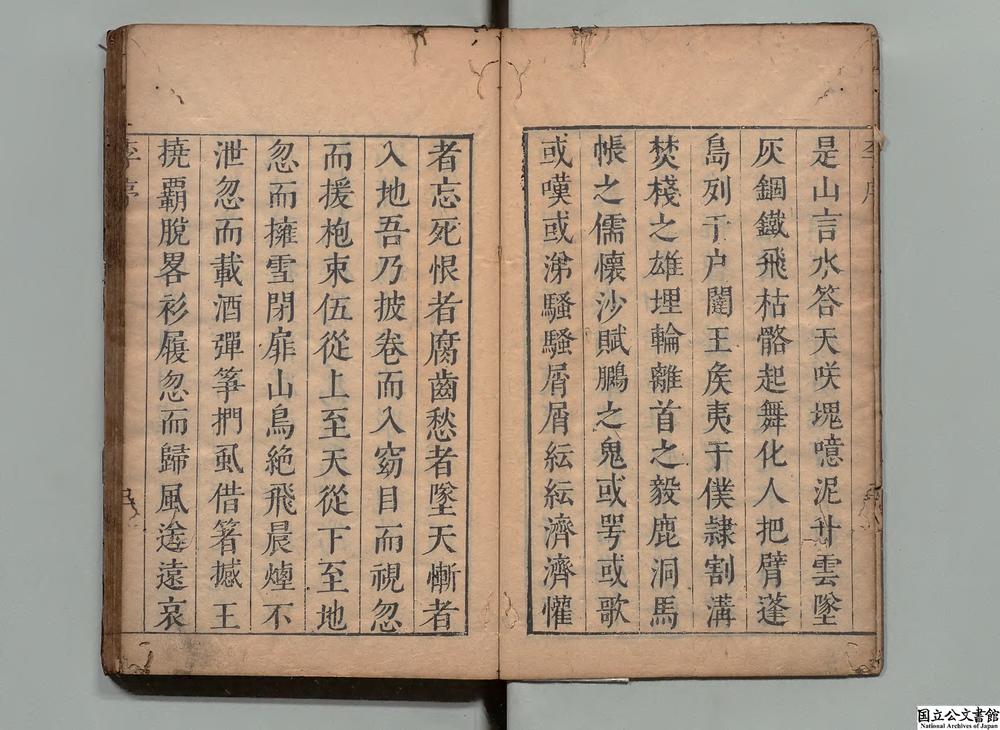 是山言水答天咲塊噫泥廾雲墜
灰錮鐵飛枯骼起舞化人把臂蓬
島列于户闥王矦夷于僕隷割溝
焚棧之雄埋輪離首之毅鹿洞馬
帳之儒懷沙賦鵩之鬼或咢或歌
或嘆或涕騷騷屑屑紜紜濟濟懽
者忘死恨者腐齒愁者墜天慚者
入地吾乃披卷而入窈目而視忽
而援枹束伍從上至天從下至地
忽而擁雪閉扉山鳥絶飛晨煙不
泄忽而載酒彈箏捫虱借箸撼王
撓覇脫畧衫履忽而歸風送遠哀
李序
国立公文書館
National Archives of Japan